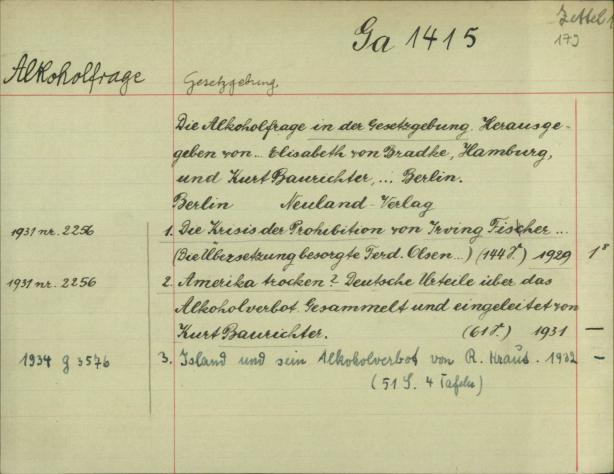 Zettel 1
179
Ga 1415
Alkoholfrage
Gesetzgebung.
Die Alkoholfrage in der Gesetzgebung. Herausge-
geben von... Elisabeth von Bradke, Hamburg,
und Kurt Baurichter, ... Berlin.
Berlin Neuland-Verlag
1931 nr. 2256 1. Die Krisis der Prohibition von Irving Fischer ...
(Die Übersetzung besorgte Ferd. Olsen...) (144 S.) 1929 1 8
1931 nr. 2256 2. Amerika trocken? Deutsche Urteile über das
Alkoholverbot. Gesammelt und eingeleitet von
Kurt Baurichter. (61 S.) 1931 —
1934 g 3576 3. Island und sein Alkoholverbot von R. Kraut. 1932 —
(51 S. 4 Tafeln)